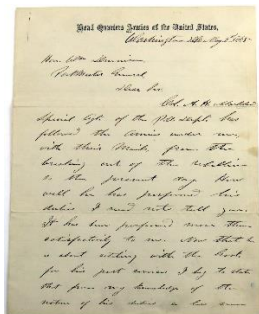 Head Quarters Armies of the United States,
Washington Aug 1865
Hon. Wm Dennison
Postmaster General
Dear Sir
Col. A. H. Markland
Special Agt of the P.O. Dept. has
followed the Armies under me,
with their Mails, from the
breaking out of the rebellion
to the present day. How
well he has performed his
duties I need not tell you.
It has been performed more than
satisfactorily to me. Now that he
is about settling with the Dept.
for his past services I beg to state
that from my knowledge of the
nature of his duties